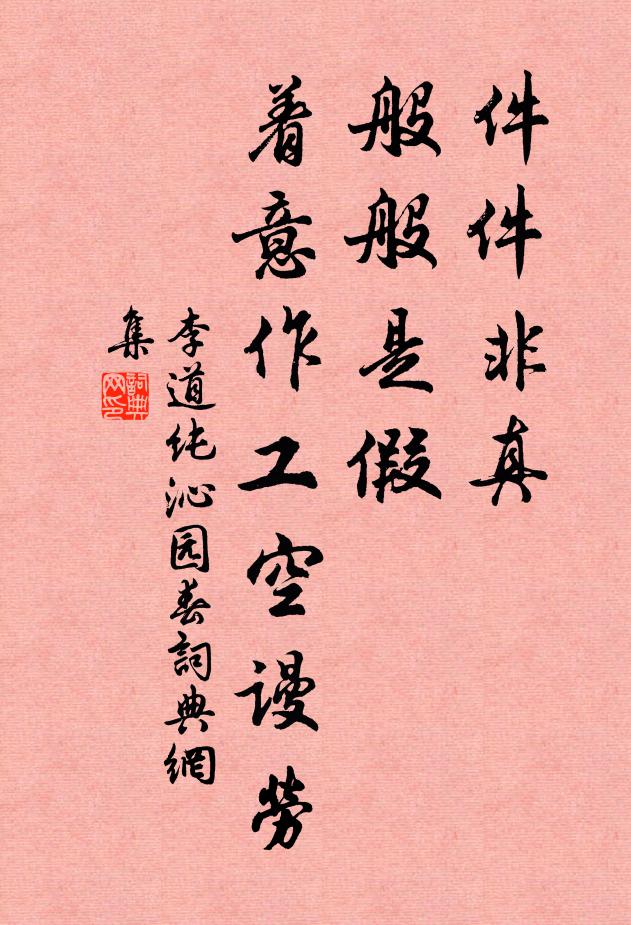 件件非真
般般是假
着意作工空谩劳
李道纯沁园春詞典網
集
詞典
网印